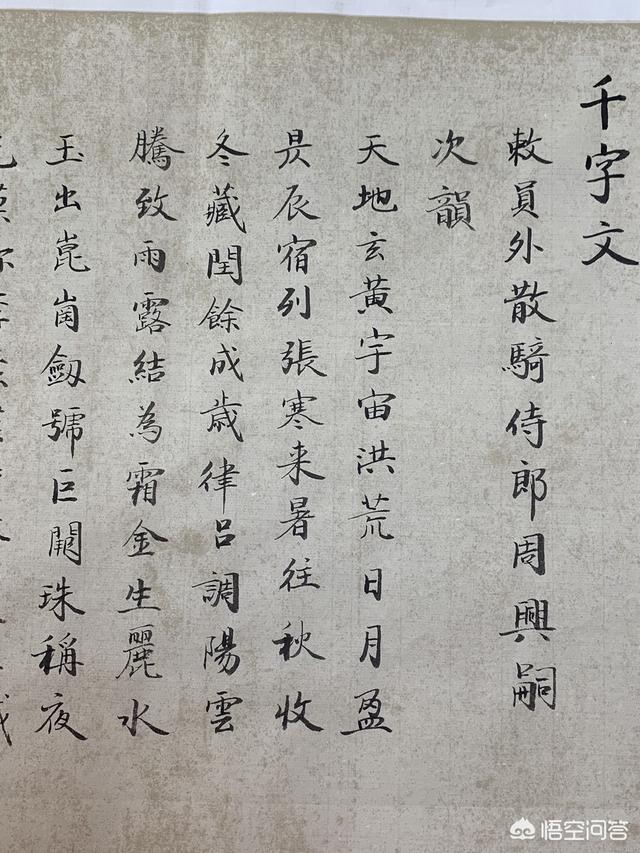 千字文
敕員外散騎侍郎周興嗣
次韻
天地玄黃宇宙洪荒日月盈
昃辰宿列張寒来暑往秋收
冬藏閏餘成歲律呂調陽雲
騰致雨露結為霜金生麗水
玉出崑崗劔號巨闕珠稱夜
悟空问答